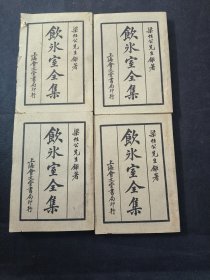 梁任公先生鉅著
飲氷室全集
上海會文堂書局印行
梁任公先生鉅著
飲氷室全集
上海會文堂書局印行
梁任公先生鉅著
飲氷室全集
上海會文堂書局印行
梁任公先生鉅著
飲氷室全集
上海會文堂書局印行